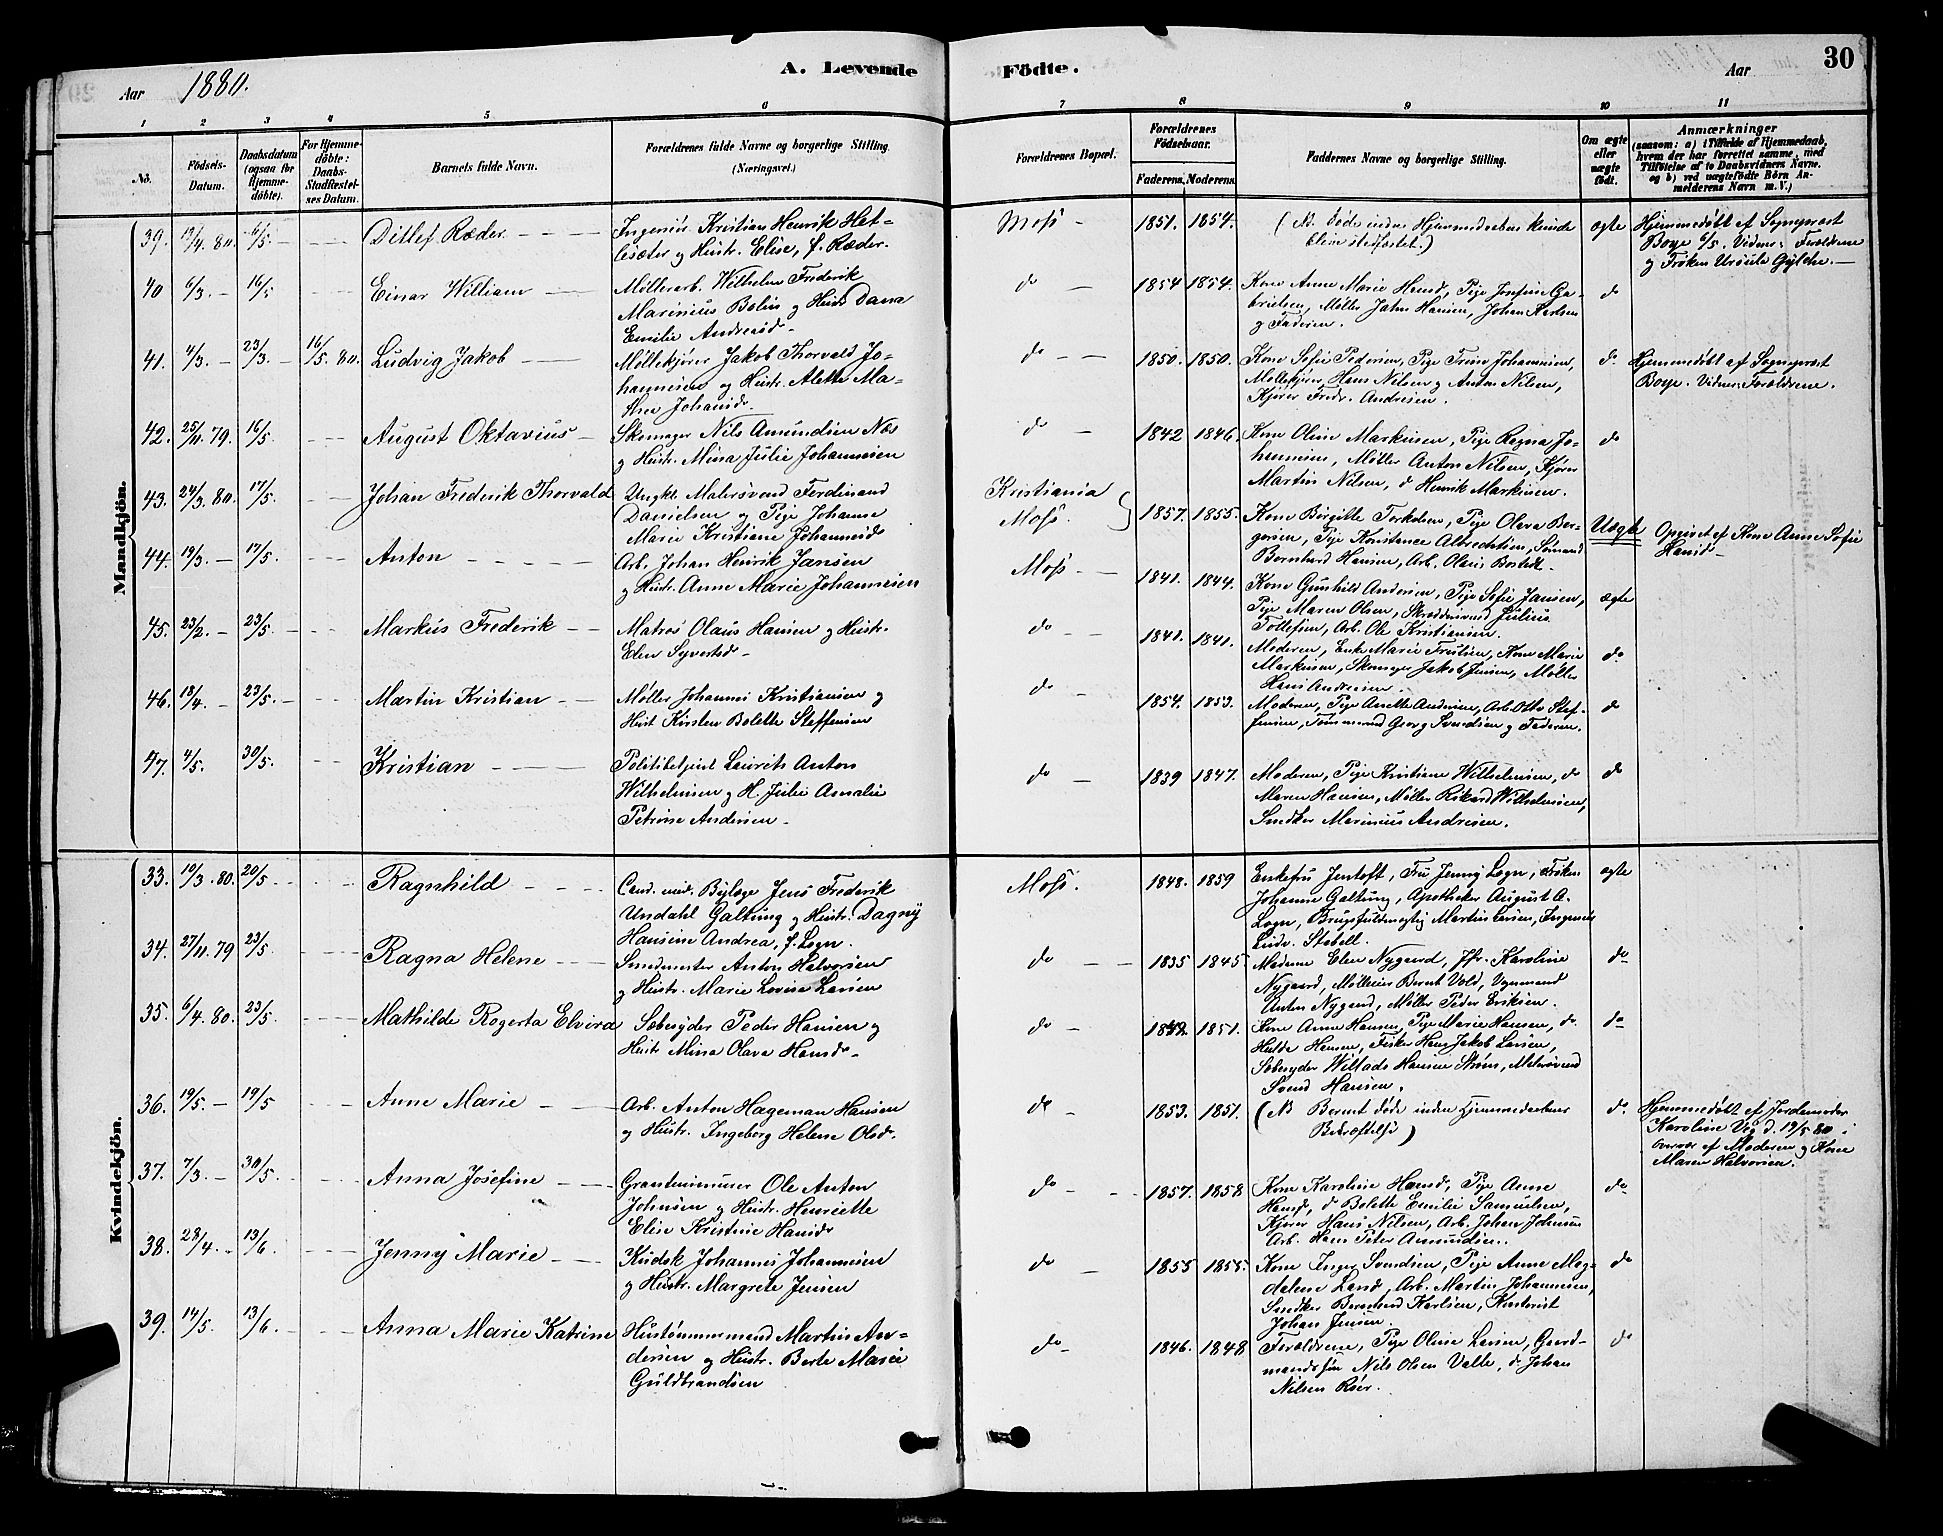 Aar 1880. A. Levende Födte. Aar 30
1 2 3 4 5 6 7 8 9 10 11
No. Födsels-Datum. Daabsdatum (ogsaa for Hjemmedöbte). For Hjemmedöbte: Daabs-Stadfæstelses Datum. Barnets fulde Navn. Forældrenes fulde Navne og borgerlige Stilling. (Næringsvei.) Forældrenes Bopæl. Forældrenes Födselsaar. Faderens. Moderens. Faddernes Navne og borgerlige Stilling. Om ægte eller uægte födt. Anmærkninger (saasom: a) i Tilfælde af Hjemmedaab, hvem der har forrettet samme, med Tilföielse af to Daabsvidners Navne. og b) ved uægtefödte Börn Anmelderens Navn m. V.)
Mandkjön.
39. 19/4. 80. 6/5. Ditlef Ræder
Ingeniör Kristian Henrik Het-
lesæter og Hustr. Elise, f. Ræder.
Moss 1851. 1854.
(Nb. Døde inden Hjemmedaaben kunde
blive stadfæstet.)
ægte
Hjemmedøbt af Sogneprest
Borge 6/5. Vidner: Forældrene
og Frøken Ursula Gylche.
40 6/3. 16/5 Einar William
Møllerarb. Wilhelm Frederik
Marinius Bolin og Hustr Dana
Emilie Andreasd.
do 1854 1854.
Kone Anne Marie Hansd, Pige Josefine Ga-
brielsen, Møller Johan Hansen, Johan Karlsen
og Faderen.
do
41. 4/3. 23/3. 16/5. 80. Ludvig Jakob
Møllekjører Jakob Thorvald Jo-
hannesen og Hustr. Alette Ma-
thea Johansd.
do 1850. 1850.
Kone Sofie Pedersen, Pige Trine Johannesen,
Møllekjører Hans Nilsen og Anton Nilsen,
Kjører Fredr. Andresen.
do
Hjemmedøbt af Sogneprest
Borge. Vidner: Forældrene.
42. 25/11. 79. 16/5 August Oktavius
Skomager Nils Amundsen Næs
og Hustr. Mina Julie Johannesen
do 1842 1846.
Kone Oline Markusen, Pige Regna Jo-
hannesen, Møller Anton Nilsen, Kjører
Martin Nilsen, do Henrik Markusen.
do
43. 24/3. 80. 17/5. Johan Frederik Thorvald
Ungkl. Malersvend Ferdinand
Danielsen og Pige Johanne
Marie Kristiane Johannesd
Kristiania
Moss.
1857. 1855.
Kone Birgitte Torkelsen, Pige Olava Bør-
gersen, Pige Konstance Albrechtsen, Sømand
Bernhard Hansen, Arb. Olaus Bostedt.
Uægte
Opgivet af Kone Anne Sofie
Hansd.
44. 19/3. 17/5. Anton
Arb. Johan Henrik Jansen
og Hustr. Anne Marie Johannesen
Moss 1841. 1844.
Kone Gunhild Andersen, Pige Sofie Jansen,
Pige Maren Olsen, Skræddersvend Julius
Tollefsen, Arb. Ole Kristiansen.
ægte
45. 23/2. 23/5. Markus Frederik
Matros Olaus Hansen og Hustr.
Elen Syvertsd.
do 1841. 1841.
Moderen, Enke Marie Trulsen, Kone Marie
Markusen, Skomager Jakob Jensen, Møller
Hans Andresen.
do
46. 18/4. 23/5. Martin Kristian
Møller Johannes Kristiansen og
Hust Kirsten Bolette Steffensen
do 1854. 1853.
Moderen, Pige Anette Andersen, Arb. Otto Stef-
fensen, Tømmermand Georg Svendsen og Faderen.
do
47. 4/5. 30/5. Kristian
Politibetjent Laurits Anton
Wilhelmsen og H. Julie Amalie
Petrine Andersen.
do 1839 1847.
Moderen, Pige Kristiane Wilhelmsen, do
Maren Hansen, Møller Rikard Wilhelmsen,
Snedker Marinius Andresen.
do
Kvindekjön.
33. 10/3. 80. 20/5 Ragnhild
Cand. med. Bylæge Jens Frederik
Undahl Galtung og Hustr. Dagny
Hansine Andrea, f. Løgn.
Moss. 1848. 1859
Enkefru Jentoft, Fru Jenny Løgn, Frøken
Johanne Galtung, Apotheker August A.
Løgn, Brugsfuldmægtig Martin Larsen, Ingeniør
Ludv. Stabell.
ægte
34. 27/11. 79 23/5. Ragna Helene
Smedmester Anton Halvorsen
og Hustr. Marie Lovise Larsen
do 1835 1845
Madame Elen Nygaard, Jfr. Karoline
Nygaard, Møller Bernt Vold, Vognmand
Anton Nygaard, Møller Peder Eriksen.
do
35. 6/4. 80. 23/5. Mathilde Rogerta Elvira
Sæbesyder Peder Hansen og
Hustr Mina Olava Hansd.
do 1852. 1851.
Kone Anne Hansen, Pige Marie Hansen, do.
Hulda Hansen, Fisker Hans Jakob Larsen,
Sæbesyder Willads Hansen Strøm, Malersvend
Svend Hansen.
do
36. 19/5. 19/5 Anne Marie
Arb. Anton Hageman Hansen
og Hustr. Ingeborg Helene Olsd.
do 1853. 1851.
(Nb Barnet døde inden Hjemmedaabens
Bekræftelse)
do.
Hjemmedøbt af Jordemoder
Karoline Vog d. 19/5 80 i
Overvær af Moderen og Kone
Maren Halvorsen.
37. 7/3. 30/5. Anna Josefine
Granitmurer Ole Anton
Johnsen og Hustr. Henriette
Elise Kristine Hansd.
do 1857. 1858
Kone Karoline Hansd, Pige Anne
Hansd, do Bolette Emilie Samuelsen,
Kjører Hans Nilsen, Arb. Johan Johnsen
Arb. Hans Peter Amundsen.
do
38. 28/4. 13/6 Jenny Marie
Kudsk Johannes Johannesen
og Hustr. Margrete Jensen
do 1855 1855.
Kone Inger Svendsen, Pige Anne Mag-
dalene Land, Arb. Martin Johannesen,
Snedker Bernhard Karlsen, Kontorist
Johan Jensen.
do
39. 14/5. 13/6. Anna Marie Katrine
Hustømmermand Martin An-
dersen og Hustr. Berte Marie
Guldbrandsen
do 1846. 1848
Forældrene, Pige Oline Larsen, Gaard-
mandssøn Nils Olsen Valle, do Johan
Nilsen Røer.
do